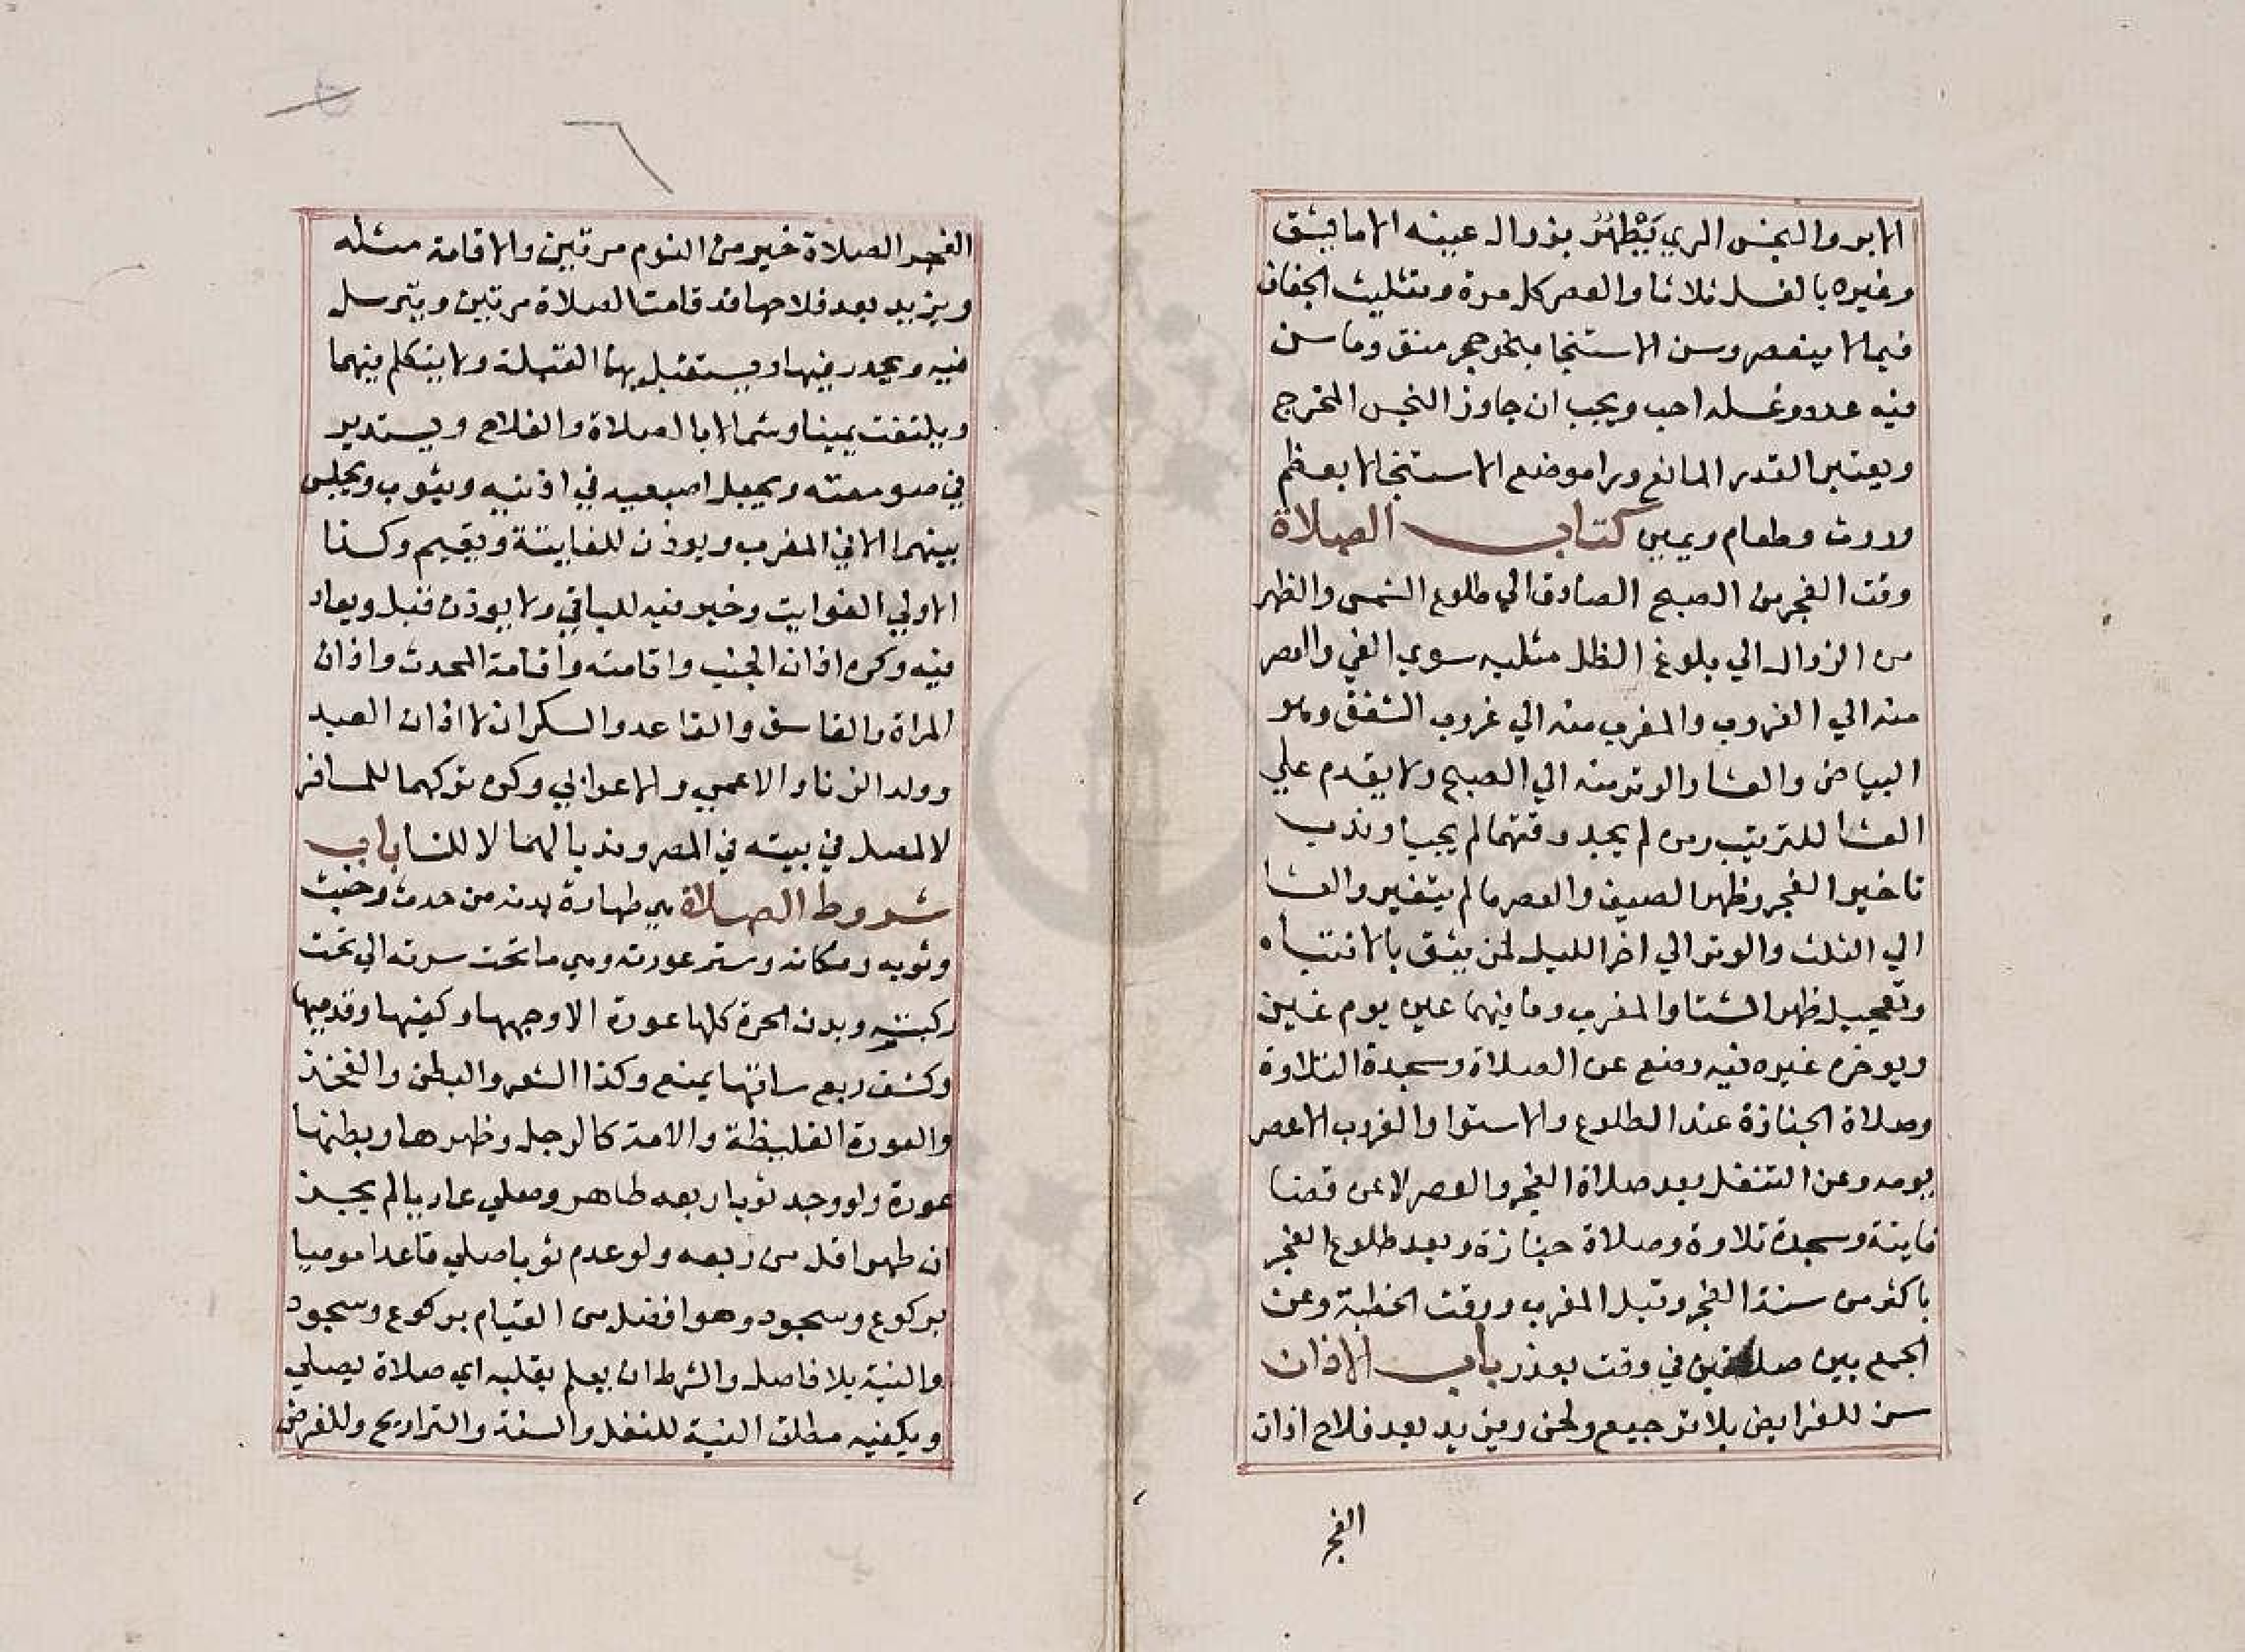 الابر والنجس المري يَطْهُرُ بزوال عينه الا ما يشق
وغيره بالغسل ثلاثا والعصر كل مرة وبتثليث الجفاف
فيما لا ينعصر وسن الاستنجا بنحو حجر منق وما سن
فيه عدد وغسله احب ويجب ان جاوز النجس المخرج
ويعتبر القدر المانع ورا موضع الاستنجا لا بعظم
وروث وطعام ويمين كتاب الصلاة
وقت الفجر من الصبح الصادق الي طلوع الشمس والظهر
من الزوال الي بلوغ الظل مثليه سوي الفي والعصر
منه الي الغروب والمغرب منه الي غروب الشفق وهو
البياض والعشا والوتر منه الي الصبح ولا يقدم علي
العشا للترتيب ومن لم يجد وقتهما لم يجبا وندب
تاخير الفجر وظهر الصيف والعصر ما لم يتغير والعشا
الي الثلث والوتر الي اخر الليل لمن يثق بالانتباه
وتعجيل ظهر الشتا والمغرب وما فيها عين يوم غين
ويوخر غيره فيه ومنع عن الصلاة وسجدة التلاوة
وصلاة الجنازة عند الطلوع والاستوا والغروب الا عصر
يومه وعن التنفل بعد صلاة الفجر والعصر لا عن قضا
فايتة وسجدة تلاوة وصلاة جنازة وبعد طلوع الفجر
باكثر من سنة الفجر وقبل المغرب ووقت الخطبة وعن
الجمع بين صلاتين في وقت بعذر باب الاذان
سن للفرايض بلا ترجيع ولحن ويزيد بعد فلاح اذان
الفجر
الفجر الصلاة خير من النوم مرتين والاقامة مثله
ويزيد بعد فلاحها قد قامت الصلاة مرتين ويترسل
فيه ويحدر فيها ويستقبل بهما القبلة ولا يتكلم فيهما
ويلتفت يمينا وشمالا بالصلاة والفلاح ويستدير
في صومعته ويجعل اصبعيه في اذنيه ويثوب ويجلس
بينهما الا في المغرب ويوذن للفايتة ويقيم وكذا
الاولي الفوايت وخير فيه للباقي ولا يوذن قبل ويعاد
فيه وكره اذان الجنب واقامته واقامة المحدث واذان
المراة والفاسق والقاعد والسكران لا اذان العبد
وولد الزنا والاعمي والاعرابي وكره تركهما للمسافر
لا لمصل في بيته في المصر وندبا لهما لا للنسا باب
شروط الصلاة هي طهارة بدنه من حدث وخبث
وثوبه ومكانه وستر عورته وهي ما تحت سرته الي تحت
ركبته وبدن الحرة كلها عورة الا وجهها وكفيها وقدميها
وكشف ربع ساقها يمنع وكذا الشعر والبطن والفخذ
والعورة الغليظة والامة كالرجل وظهرها وبطنها
عورة ولو وجد ثوبا ربعه طاهر وصلي عاريا لم يجز
ان طهر اقل من ربعه ولو عدم ثوبا صلي قاعدا موميا
بركوع وسجود وهو افضل من القيام بركوع وسجود
والنية بلا فاصل والشرط ان يعلم بقلبه اي صلاة يصلي
ويكفيه مطلق النية للنفل والسنة والتراويح وللفرض